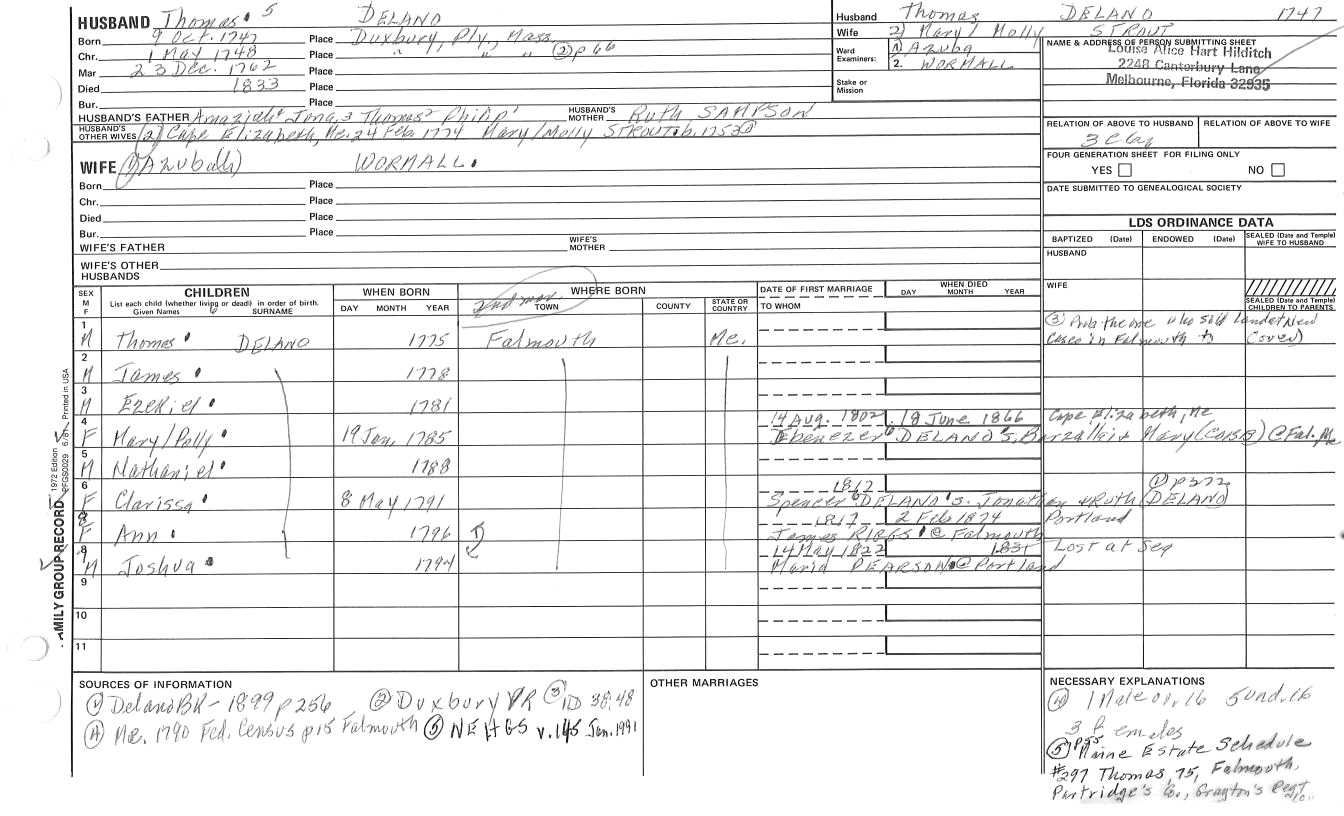 HUSBAND Thomas 5 DELANO
Born 9 Oct. 1747 Place Duxbury, Ply, Mass
Chr. 1 May 1748 Place " " (2) p 66
Mar 23 Dec. 1762 Place
Died 1833 Place
Bur. Place
HUSBAND'S FATHER Amaziah4 Jona.3 Thomas2 Philip1 HUSBAND'S MOTHER Ruth SAMPSON
HUSBAND'S OTHER WIVES (2) Cape Elizabeth, Me. 24 Feb 1774 Mary/Molly STROUT b. 1753
WIFE (1) Azubah) WORMALL.
Born Place
Chr. Place
Died Place
Bur. Place
WIFE'S FATHER WIFE'S MOTHER
WIFE'S OTHER HUSBANDS
Husband Thomas DELANO 1747
Wife 2) Mary/Molly STROUT
Ward Examiners: 1) Azuba
2. WORMALL
Stake or Mission
NAME & ADDRESS OF PERSON SUBMITTING SHEET
Louise Alice Hart Hilditch
2248 Canterbury Lane
Melbourne, Florida 32935
RELATION OF ABOVE TO HUSBAND RELATION OF ABOVE TO WIFE
FOUR GENERATION SHEET FOR FILING ONLY
YES NO
DATE SUBMITTED TO GENEALOGICAL SOCIETY
LDS ORDINANCE DATA
BAPTIZED (Date) ENDOWED (Date) SEALED (Date and Temple) WIFE TO HUSBAND
HUSBAND
WIFE
SEALED (Date and Temple) CHILDREN TO PARENTS
SEX M F
CHILDREN
List each child (whether living or dead) in order of birth.
Given Names SURNAME
WHEN BORN
DAY MONTH YEAR
WHERE BORN
2nd mar. TOWN COUNTY STATE OR COUNTRY
DATE OF FIRST MARRIAGE
TO WHOM
WHEN DIED
DAY MONTH YEAR
1 M Thomas DELANO 1775 Falmouth Me.
(3) Prob the one who sold land at New
Casco in Falmouth to
2 M James 1778
3 M Ezekiel 1781
4 F Mary/Polly 19 Jan. 1785 14 Aug. 1802 18 June 1866 Cape Elizabeth, Me
Ebenezer DELANO s. Barzallai & Mary (COBB) @ Fal. Me
5 M Nathaniel 1788
6 F Clarissa 8 May 1791 1812 (1) p 372
Spencer DELANO s. Jonathan & Ruth (DELANO)
8 F Ann 1796 1817 2 Feb 1874 Portland
James RIGGS @ Falmouth
M Joshua 1794 14 May 1822 1831 Lost at Sea
Maria PEARSON @ Portland
9
10
11
FAMILY GROUP RECORD 1972 Edition PFGS0029 6/81 Printed in USA
SOURCES OF INFORMATION
(1) Delano BK - 1899 p 256 (2) Duxbury VR (3) ID 38:48
(4) Me. 1790 Fed. Census p 15 Falmouth (5) NEHGS v. 145 Jan. 1991
OTHER MARRIAGES
NECESSARY EXPLANATIONS
(4) 1 Male ov. 16 5 und. 16
3 females
(5) p55 Maine Estate Schedule
#297 Thomas, 75, Falmouth,
Partridge's Co., Grayton's Regt